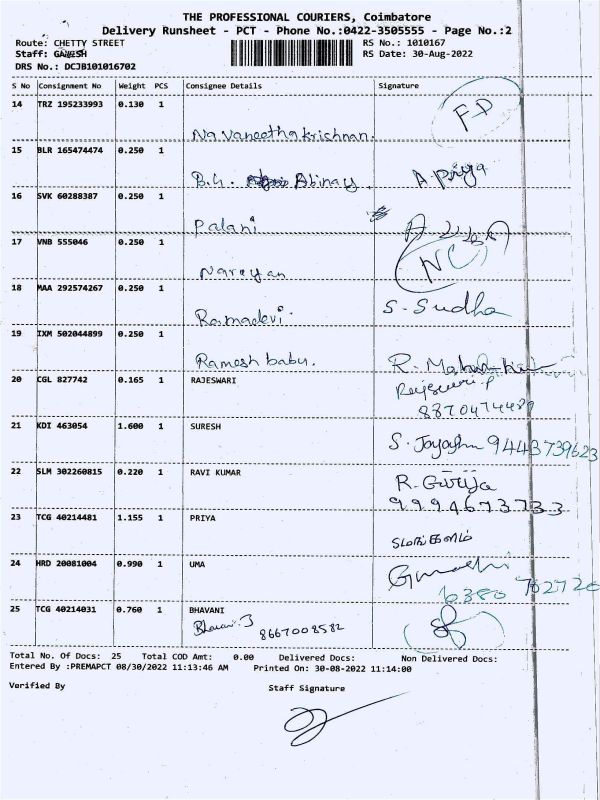 THE PROFESSIONAL COURIERS, Coimbatore
Delivery Runsheet - PCT - Phone No.:0422-3505555 - Page No.:2
Route: CHETTY STREET RS No.: 1010167
Staff: GANESH RS Date: 30-Aug-2022
DRS No.: DCJB101016702
S No Consignment No Weight PCS Consignee Details Signature
14 TRZ 195233993 0.130 1 FD
Navaneethakrishnan.
15 BLR 165474474 0.250 1
B.G. Abinay. A. Priya
16 SVK 60288387 0.250 1
Palani
17 VNB 555046 0.250 1 NC
Narayan
18 MAA 292574267 0.250 1
Ramadevi. S. Sudha
19 IXM 502044899 0.250 1
Ramesh babu. R.
20 CGL 827742 0.165 1 RAJESWARI
8870474489
21 KDI 463054 1.600 1 SURESH
S. 9443739623
22 SLM 302260815 0.220 1 RAVI KUMAR
R. Girija
9994673733
23 TCG 40214481 1.155 1 PRIYA
24 HRD 20081004 0.990 1 UMA
6380 762720
25 TCG 40214031 0.760 1 BHAVANI
Bhavani.J 8667008582
Total No. Of Docs: 25 Total COD Amt: 0.00 Delivered Docs: Non Delivered Docs:
Entered By :PREMAPCT 08/30/2022 11:13:46 AM Printed On: 30-08-2022 11:14:00
Verified By Staff Signature